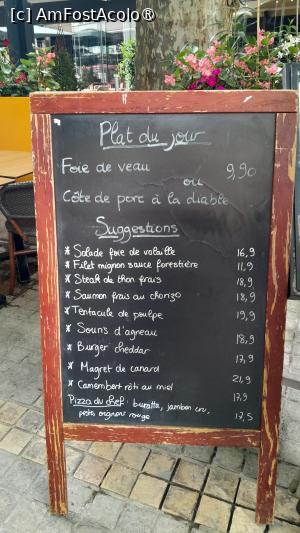 [c] AmFostAcolo®
Plat du jour
Foie de veau 9,90
ou
Côte de porc à la diable
Suggestions
* Salade foie de volaille 16,9
* Filet mignon sauce forestière 11,9
* Steak de thon frais 18,9
* Saumon frais au chorizo 18,9
* Tentacule de poulpe 19,9
* Souris d'agneau 18,9
* Burger cheddar 17,9
* Magret de canard 21,9
* Camembert rôti au miel 17,9
Pizza du chef: buratta, jambon cru,
pesto, oignons rouge 17,5